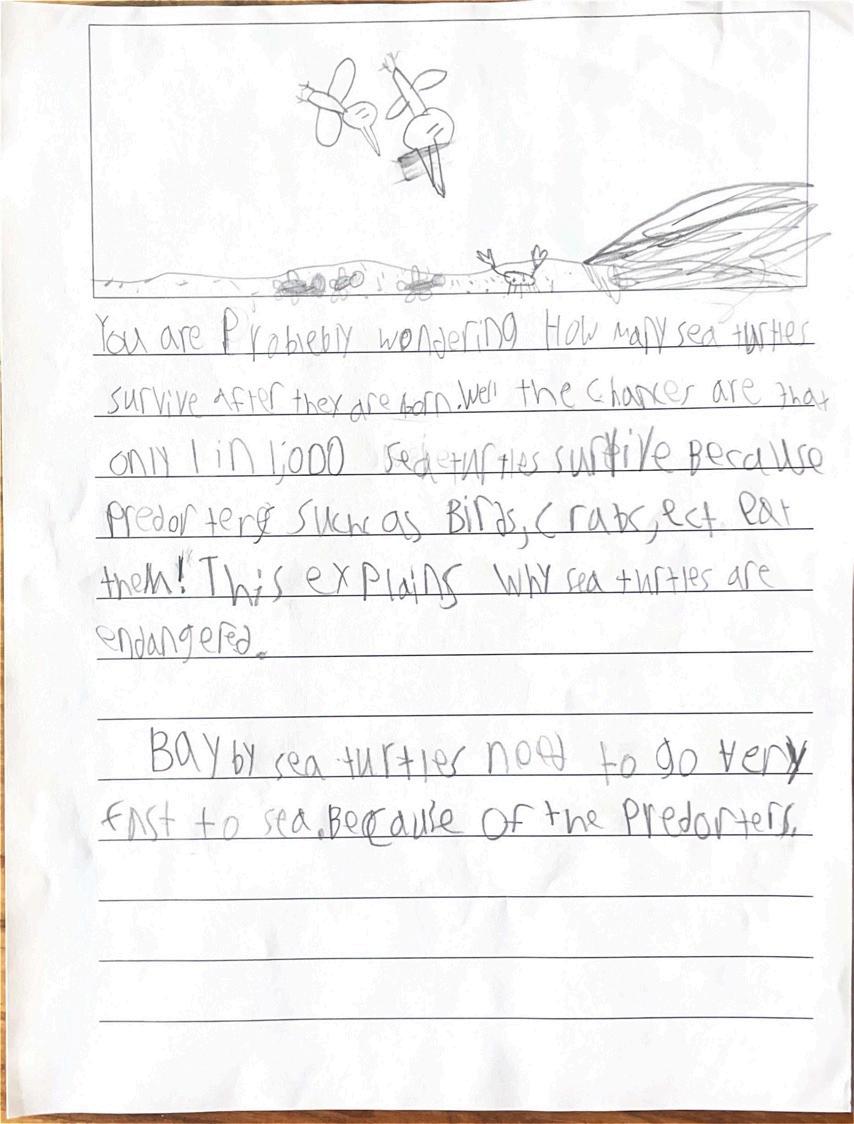 You are Problebly wondering How many sea turtles
survive After they are born. Well the Chances are that
only 1 in 1,000 sea turtles survive Because
Predorters such as Birds, Crabs, ect eat
them! This explains Why sea turtles are
endangered.
BAyby sea turtles need to go very
fast to sea. Because of the Predorters.